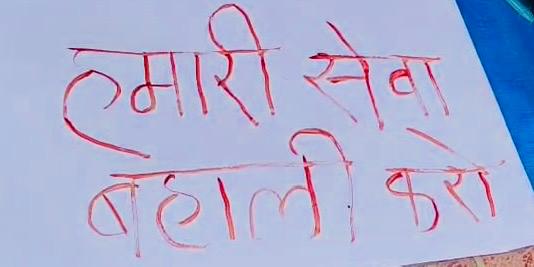 हमारी सेवा
बहाली करो